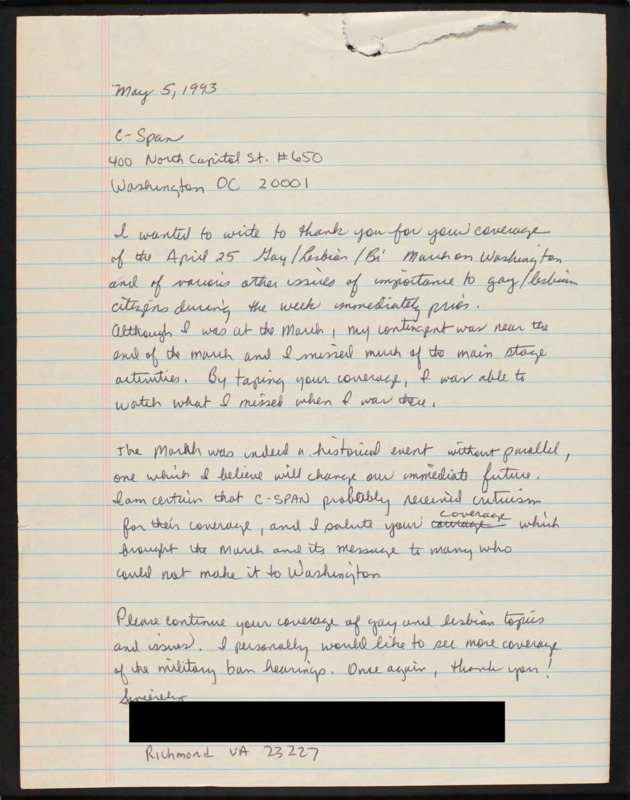 May 5, 1993
C-Span
400 North Capitol St. #650
Washington DC 20001
I wanted to write to thank you for your coverage
of the April 25 Gay/Lesbian/Bi March on Washington
and of various other issues of importance to gay/lesbian
citizens during the week immediately prior.
Although I was at the March, my contingent was near the
end of the march and I missed much of the main stage
activities. By taping your coverage, I was able to
watch what I missed when I was there.
The March was indeed a historical event without parallel,
one which I believe will change our immediate future.
I am certain that C-SPAN probably received criticism
for their coverage, and I salute your coverage which
brought the March and its message to many who
could not make it to Washington
Please continue your coverage of gay and lesbian topics
and issues. I personally would like to see more coverage
of the military ban hearings. Once again, thank you!
Sincerely
Richmond VA 23227